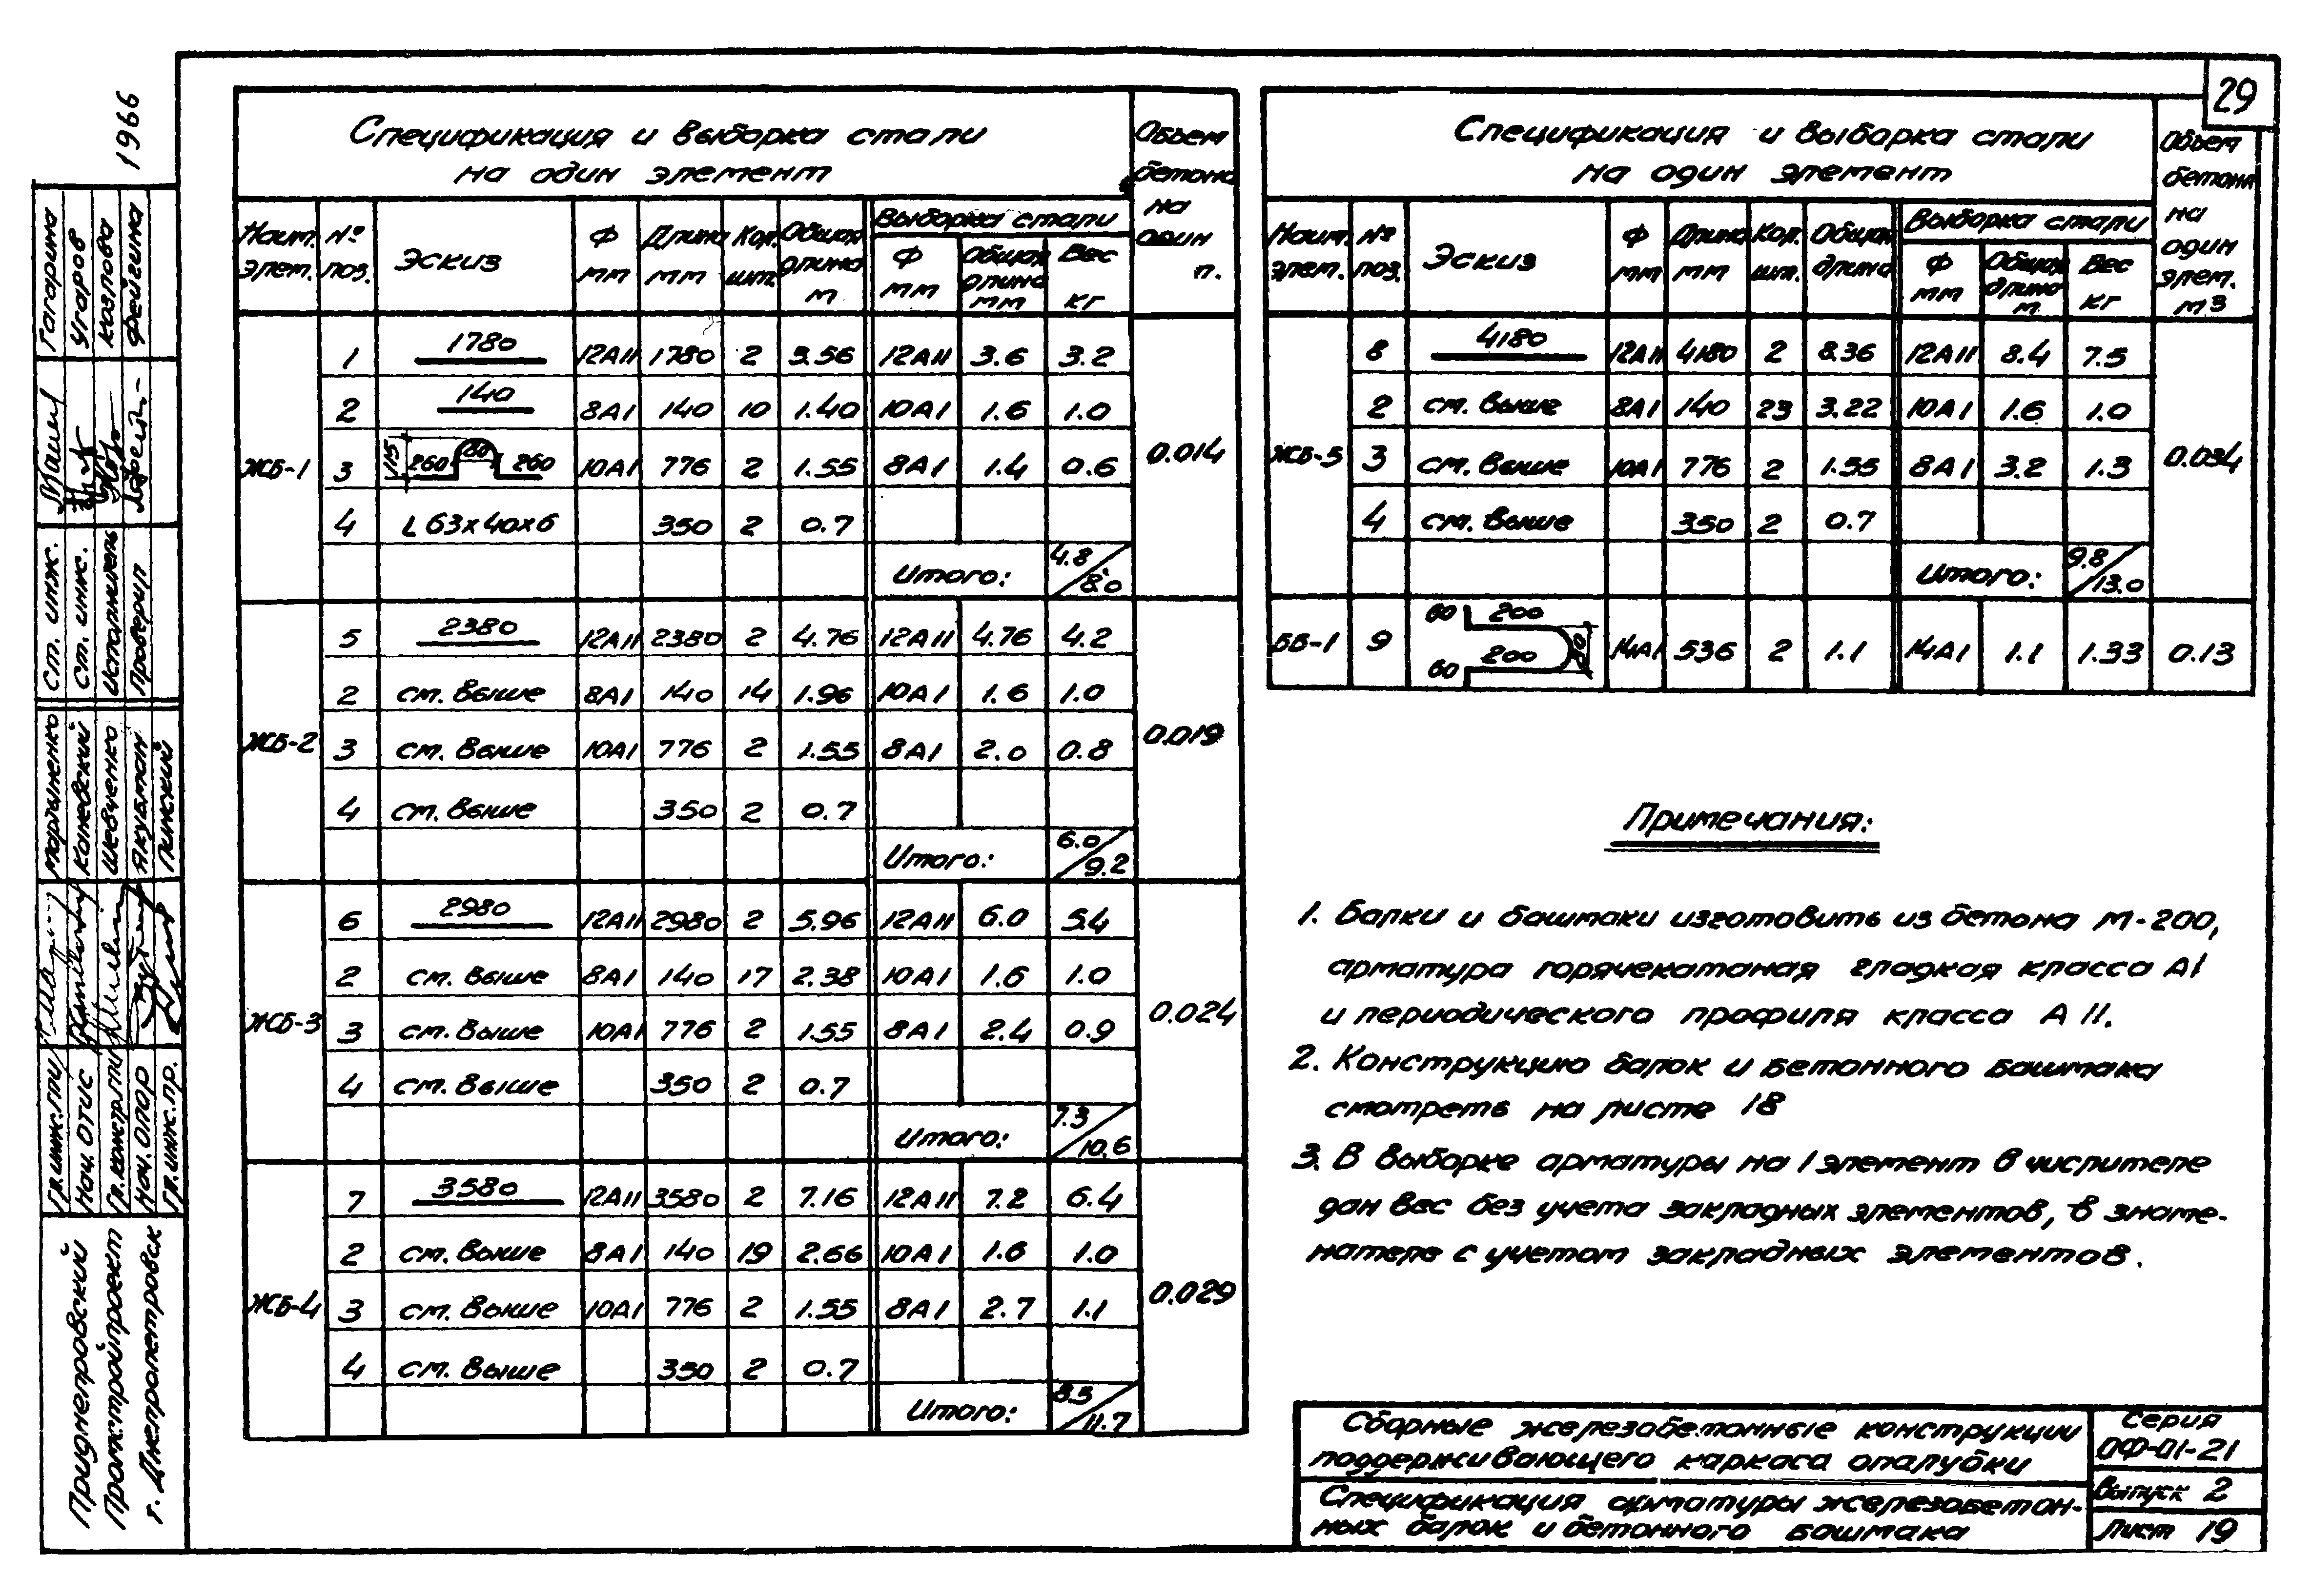 29
1966
Спецификация и выборка стали
на один элемент
Объем
бетона
на
один
п.
Наим. элем.
№ поз.
Эскиз
Ф мм
Длина мм
Кол. шт.
Общая длина м
Выборка стали
Ф мм
Общая длина мм
Вес кг
ЖБ-1
1 1780 12АII 1780 2 3.56 12АII 3.6 3.2
2 140 8АI 140 10 1.40 10АI 1.6 1.0
3 115 260 80 260 10АI 776 2 1.55 8АI 1.4 0.6
0.014
4 L 63х40х6 350 2 0.7
Итого: 4.8/8.0
ЖБ-2
5 2380 12АII 2380 2 4.76 12АII 4.76 4.2
2 ст. выше 8АI 140 14 1.96 10АI 1.6 1.0
3 ст. выше 10АI 776 2 1.55 8АI 2.0 0.8
0.019
4 ст. выше 350 2 0.7
Итого: 6.0/9.2
ЖБ-3
6 2980 12АII 2980 2 5.96 12АII 6.0 5.4
2 ст. выше 8АI 140 17 2.38 10АI 1.6 1.0
3 ст. выше 10АI 776 2 1.55 8АI 2.4 0.9
0.024
4 ст. выше 350 2 0.7
Итого: 7.3/10.6
ЖБ-4
7 3580 12АII 3580 2 7.16 12АII 7.2 6.4
2 ст. выше 8АI 140 19 2.66 10АI 1.6 1.0
3 ст. выше 10АI 776 2 1.55 8АI 2.7 1.1
0.029
4 ст. выше 350 2 0.7
Итого: 8.5/11.7
Спецификация и выборка стали
на один элемент
Объем
бетона
на
один
элем.
м3
Наим. элем.
№ поз.
Эскиз
Ф мм
Длина мм
Кол. шт.
Общая длина
Выборка стали
Ф мм
Общая длина м
Вес кг
ЖБ-5
8 4180 12АII 4180 2 8.36 12АII 8.4 7.5
2 ст. выше 8АI 140 23 3.22 10АI 1.6 1.0
3 ст. выше 10АI 776 2 1.55 8АI 3.2 1.3
0.034
4 ст. выше 350 2 0.7
Итого: 9.8/13.0
ББ-1 9 60 200 200 60 80 14АI 536 2 1.1 14АI 1.1 1.33 0.13
Примечания:
1. Балки и башмаки изготовить из бетона М-200,
арматура горячекатаная гладкая класса АI
и периодического профиля класса А II.
2. Конструкцию балок и бетонного башмака
смотреть на листе 18
3. В выборке арматуры на 1 элемент в числителе
дан вес без учета закладных элементов, в знаме-
нателе с учетом закладных элементов.
Сборные железобетонные конструкции
поддерживающего каркаса опалубки
Спецификация арматуры железобетон-
ных балок и бетонного башмака
Серия
ОФ-01-21
Выпуск 2
Лист 19
Гагарина
Угаров
Козлова
Фейгина
ст. инж.
ст. инж.
Исполнитель
Проверил
Мартыненко
Каневский
Шевченко
Якубман
Пинский
Гл.инж.ПИ
Нач. ОТИС
Гл.констр.ПИ
Нач. ОПОР
Гл.инж.пр.
Приднепровский
Промстройпроект
г. Днепропетровск